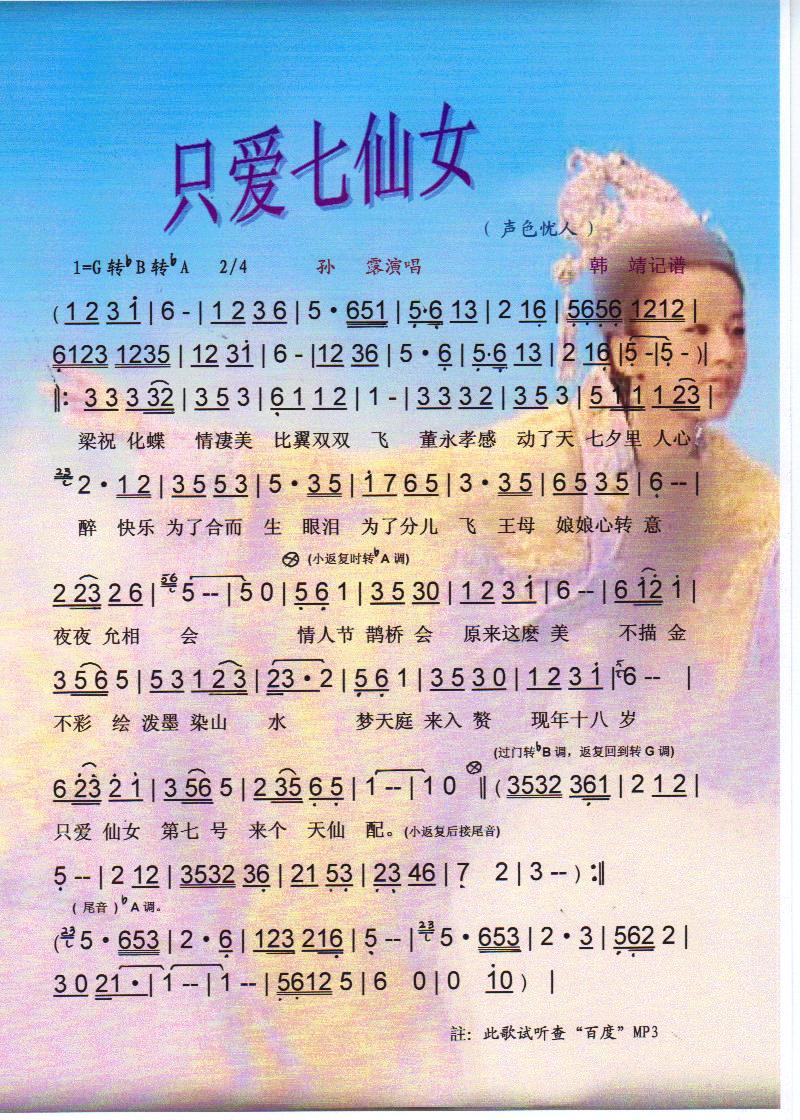 只爱七仙女
（ 声色忧人 ）
1=G 转♭B 转♭A 2/4 孙 露演唱 韩 靖记谱
( 1 2 3 1 | 6 - | 1 2 3 6 | 5 · 651 | 5·6 13 | 2 16 | 5656 1212 |
6123 1235 | 12 31 | 6 - | 12 36 | 5 · 6 | 5·6 13 | 2 16 | 5 - | 5 - ) |
‖: 3 3 3 32 | 3 5 3 | 6 1 1 2 | 1 - | 3 3 3 2 | 3 5 3 | 5 1 1 1 23 |
梁祝 化蝶 情凄美 比翼双双 飞 董永孝感 动了天 七夕里 人心
23 2 · 1 2 | 3 5 5 3 | 5 · 3 5 | 1 7 6 5 | 3 · 3 5 | 6 5 3 5 | 6 - - |
醉 快乐 为了合而 生 眼泪 为了分儿 飞 王母 娘娘心转 意
(小返复时转♭A 调)
2 23 2 6 | 56 5 - - | 5 0 | 5 6 1 | 3 5 30 | 1 2 3 1 | 6 - - | 6 12 1 |
夜夜 允相 会 情人节 鹊桥 会 原来这麽 美 不描 金
3 5 6 5 | 5 3 1 2 3 | 23 · 2 | 5 6 1 | 3 5 3 0 | 1 2 3 1 | 5 6 - - |
不彩 绘 泼墨 染山 水 梦天庭 来入 赘 现年十八 岁
(过门转♭B 调，返复回到转 G 调)
6 23 2 1 | 3 56 5 | 2 35 6 5 | 1 - - | 1 0 ‖ ( 3532 361 | 2 1 2 |
只爱 仙女 第七 号 来个 天仙 配。(小返复后接尾音)
5 - - | 2 12 | 3532 36 | 21 53 | 23 46 | 7 2 | 3 - - ) :‖
( 尾音 ) ♭A 调。
( 23 5 · 653 | 2 · 6 | 123 216 | 5 - - | 23 5 · 653 | 2 · 3 | 562 2 |
3 0 21 · | 1 - - | 1 - - | 5612 5 | 6 0 | 0 10 ) |
註: 此歌试听查“百度”MP3